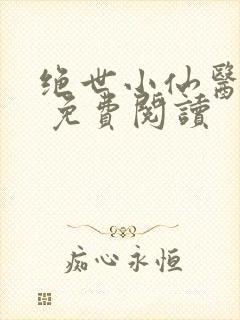 绝世小仙醫
免費閱讀
痴心永恒